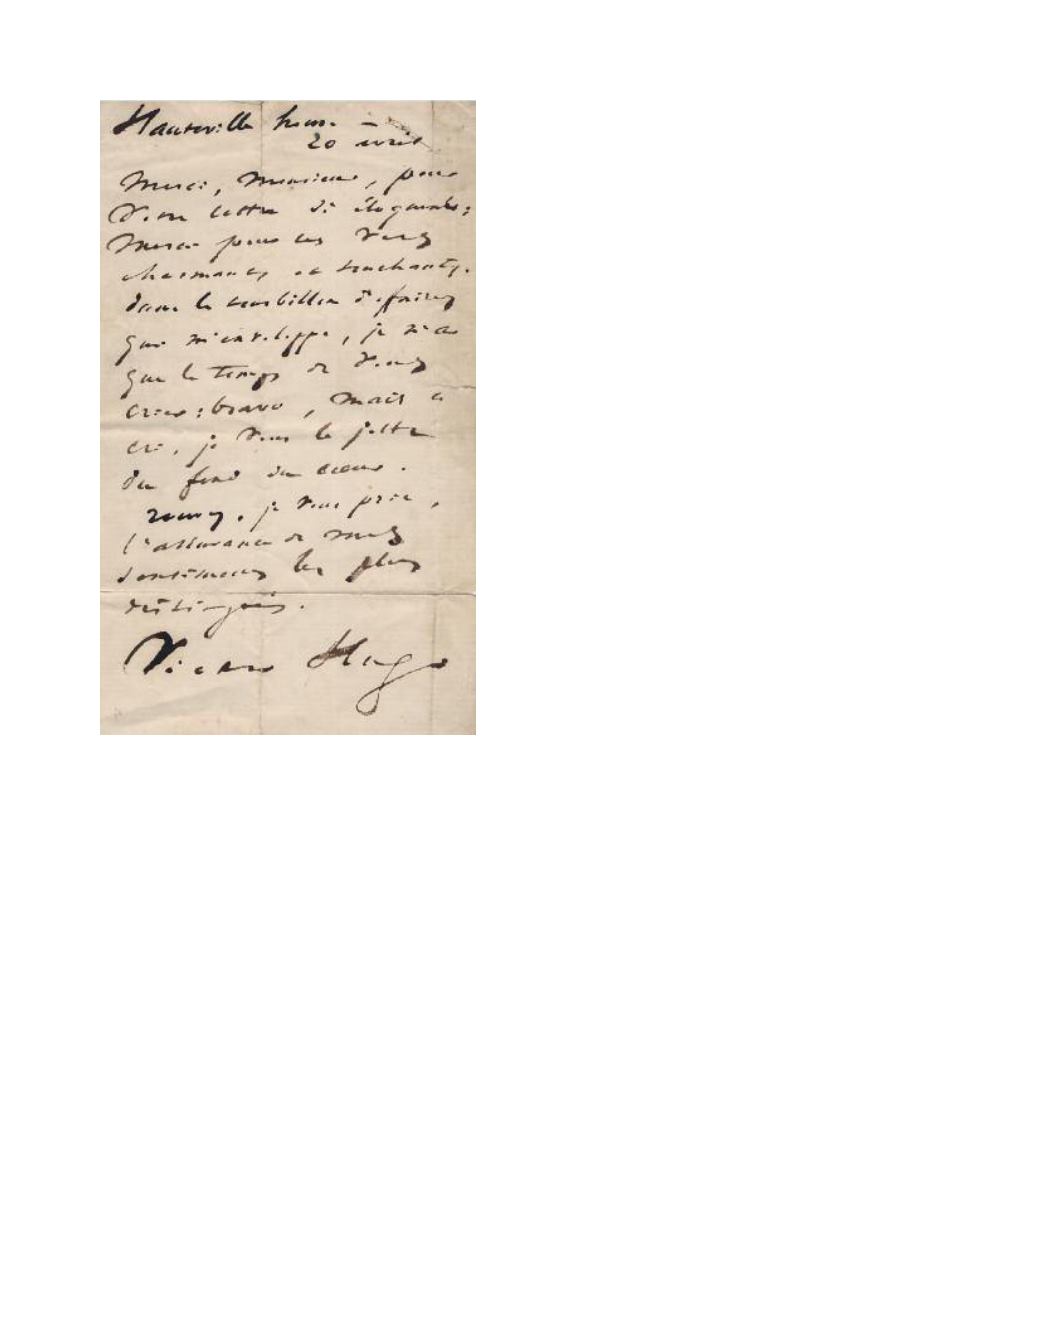 Hauteville house –
20 avril
Merci, Monsieur, pour
votre lettre si éloquente ;
Merci pour ces vers
charmants et touchants.
dans le tourbillon d'affaires
qui m'enveloppe, je n'ai
que le temps de vous
crier : bravo, mais ce
cri, je vous le jette
du fond du cœur.
recevez, je vous prie,
l'assurance de mes
sentiments les plus
distingués.
Victor Hugo